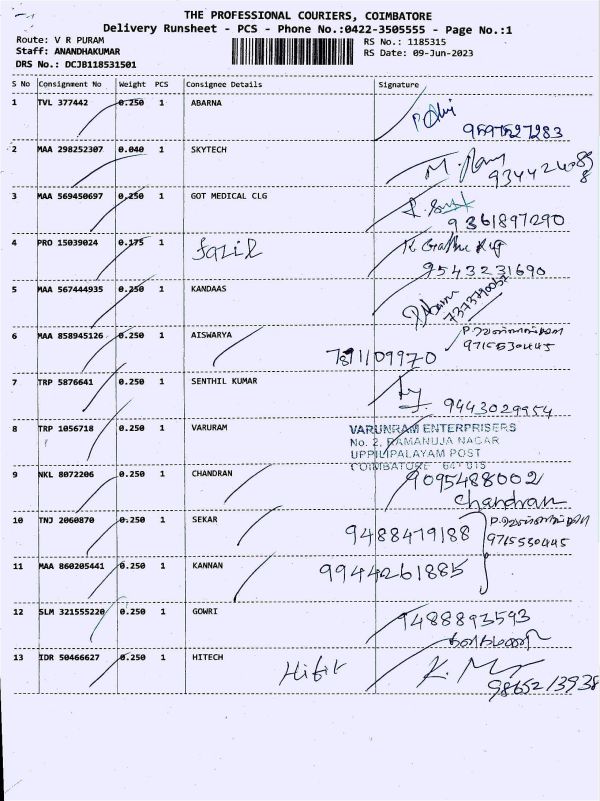 THE PROFESSIONAL COURIERS, COIMBATORE
Delivery Runsheet - PCS - Phone No.:0422-3505555 - Page No.:1
Route: V R PURAM RS No.: 1185315
Staff: ANANDHAKUMAR RS Date: 09-Jun-2023
DRS No.: DCJB118531501
S No Consignment No Weight PCS Consignee Details Signature
1 TVL 377442 0.250 1 ABARNA
9597527283
2 MAA 298252307 0.040 1 SKYTECH
3 MAA 569450697 0.250 1 GOT MEDICAL CLG
9361897290
4 PRO 15039024 0.175 1 Fazil
9543231690
5 MAA 567444935 0.250 1 KANDAAS
6 MAA 858945126 0.250 1 AISWARYA
9715530445
7 TRP 5876641 0.250 1 SENTHIL KUMAR
9443029954
8 TRP 1056718 0.250 1 VARURAM VARUNRAM ENTERPRISERS
No. 2, RAMANUJA NAGAR
UPPILIPALAYAM POST
COIMBATORE 641 015
9 NKL 8072206 0.250 1 CHANDRAN 9095488002
Chandran
10 TNJ 2060870 0.250 1 SEKAR 9488479188
9715530445
11 MAA 860205441 0.250 1 KANNAN 9944261885
12 SLM 321555220 0.250 1 GOWRI 9488893593
13 IDR 50466627 0.250 1 HITECH Hifit
9865213938